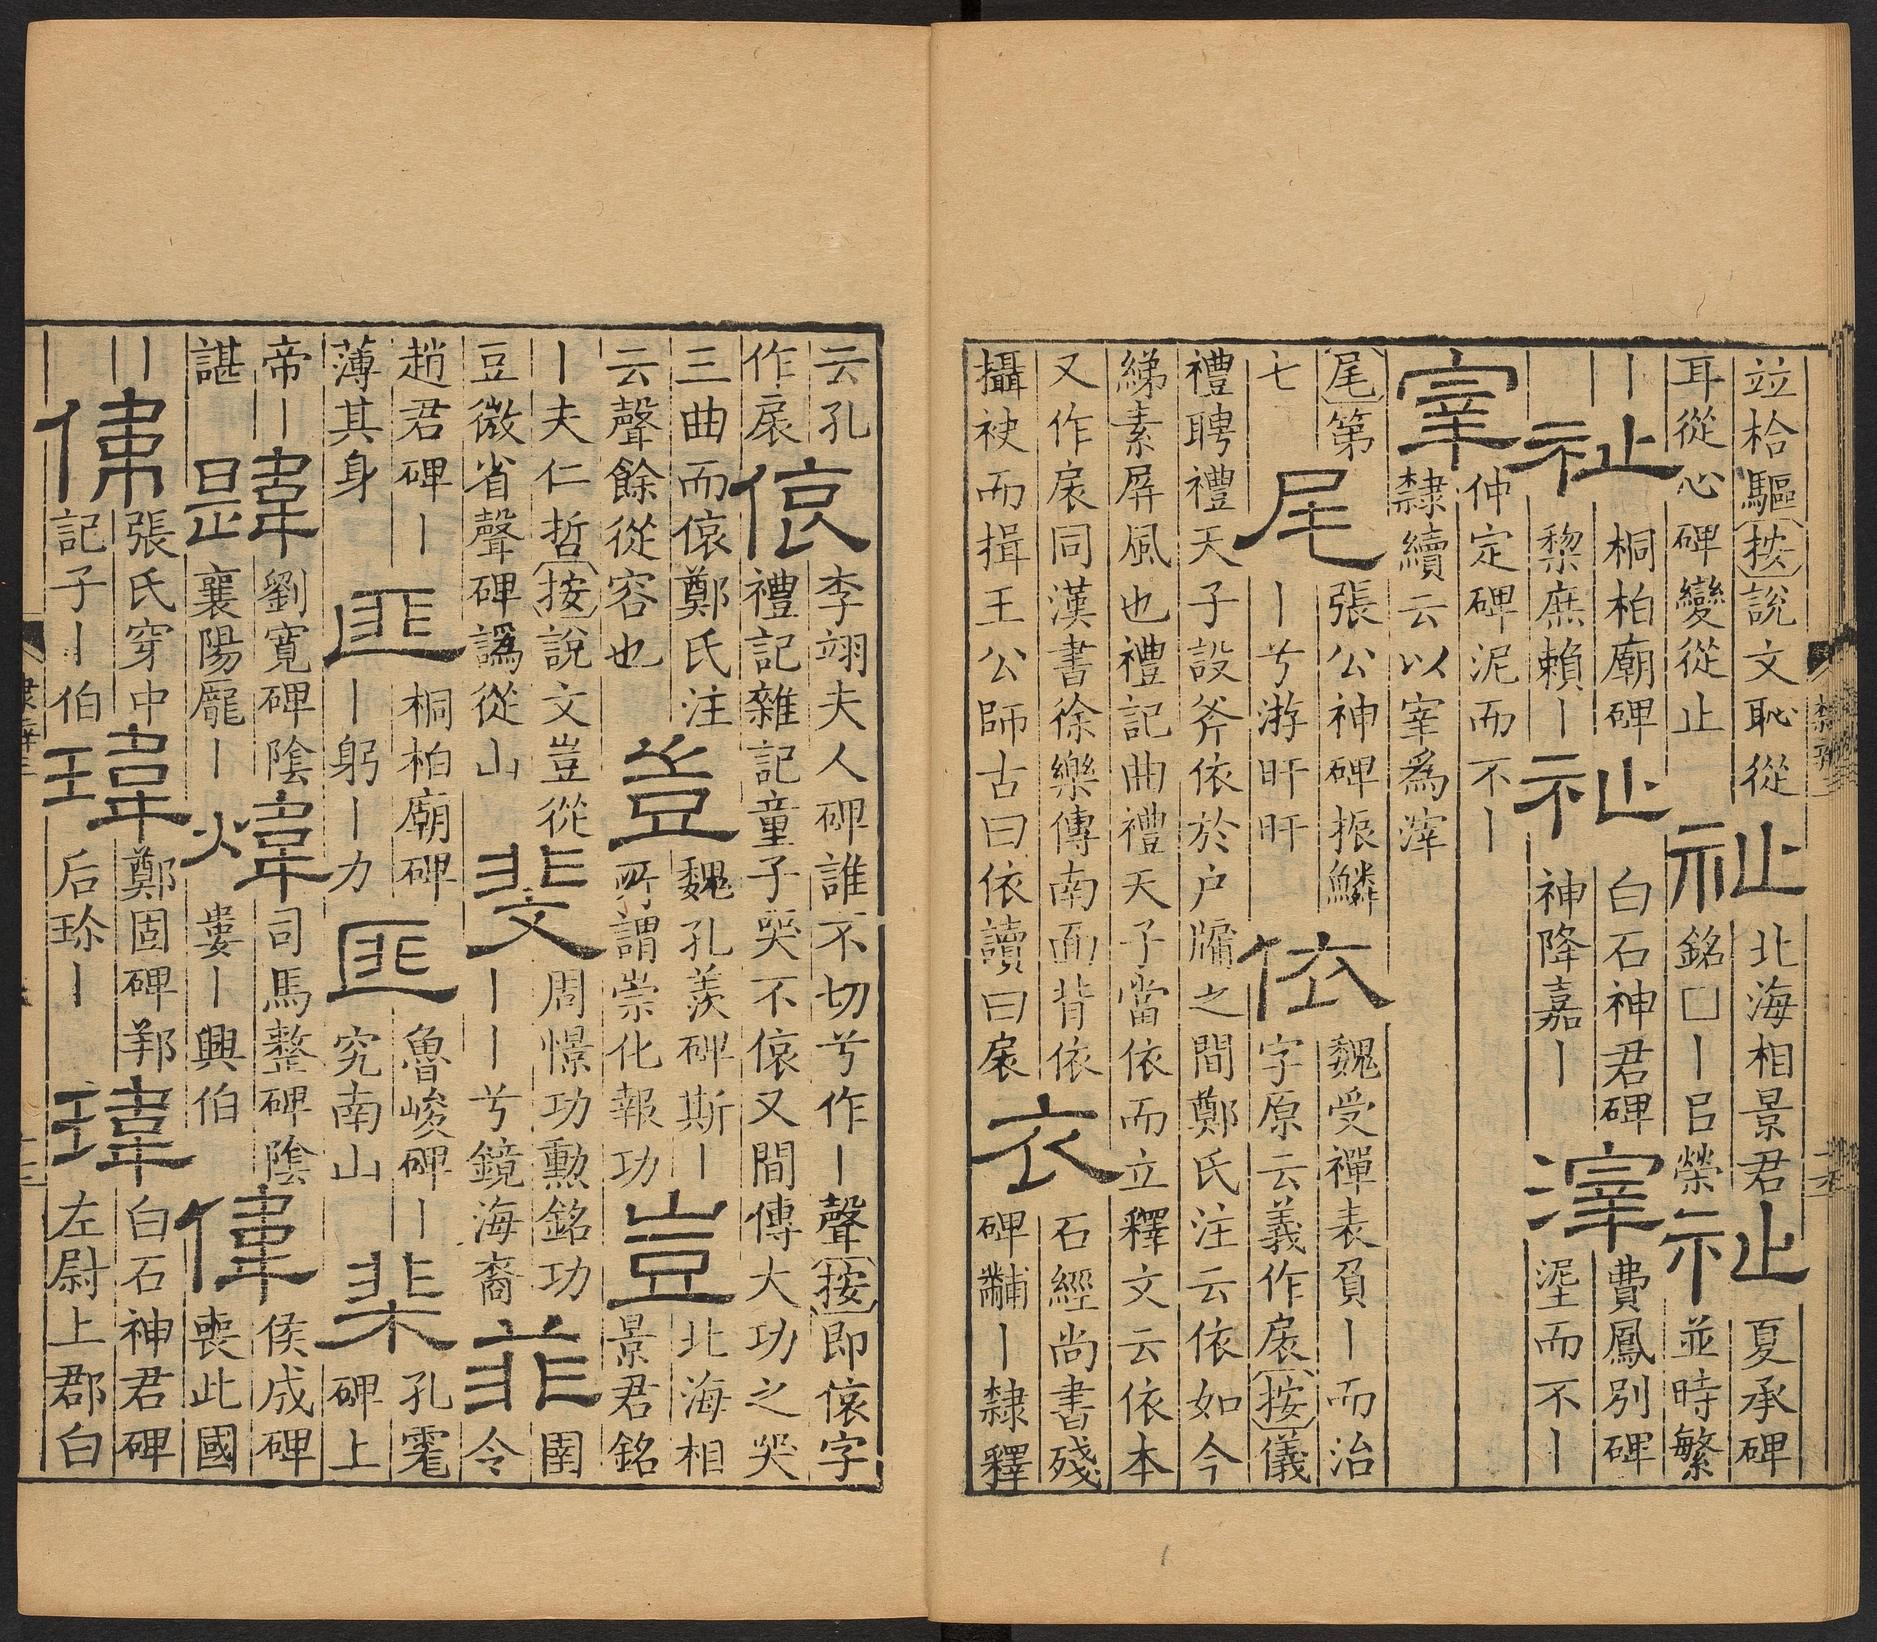 竝枱驅按說文恥從
耳從心碑變從止
祉
北海相景君
銘□丨呂榮
祉
夏承碑
並時繁
丨
祉
桐柏廟碑
黎庶賴丨
祉
白石神君碑
神降嘉丨
滓
費鳳別碑
埿而不丨
宰
仲定碑泥而不丨
隸續云以宰為滓
尾第
七
尾
張公神碑振鱗
丨兮游旰旰
依
魏受禪表負丨而治
字原云義作扆按儀
禮聘禮天子設斧依於户牖之間鄭氏注云依如今
綈素屏風也禮記曲禮天子當依而立釋文云依本
又作扆同漢書徐樂傳南面背依
攝袂而揖王公師古曰依讀曰扆
衣
石經尚書殘
碑黼丨隸釋
云孔
作扆
偯
李翊夫人碑誰不切兮作丨聲按即偯字
禮記雜記童子哭不偯又間傳大功之哭
三曲而偯鄭氏注
云聲餘從容也
豈
魏孔羨碑斯丨
所謂崇化報功
豈
北海相
景君銘
丨夫仁哲按說文豈從
豆微省聲碑譌從山
斐
周憬功勳銘功
丨丨兮鏡海裔
菲
圉
令
趙君碑丨
薄其身
匪
桐柏廟碑
丨躬丨力
匪
魯峻碑丨
究南山
棐
孔䨲
碑上
帝丨
諶
韙
劉寬碑陰
襄陽龎丨
煒
司馬整碑陰
婁丨興伯
偉
侯成碑
喪此國
丨
偉
張氏穿中
記子丨伯
瑋
鄭固碑邦
后珍丨
瑋
白石神君碑
左尉上郡白